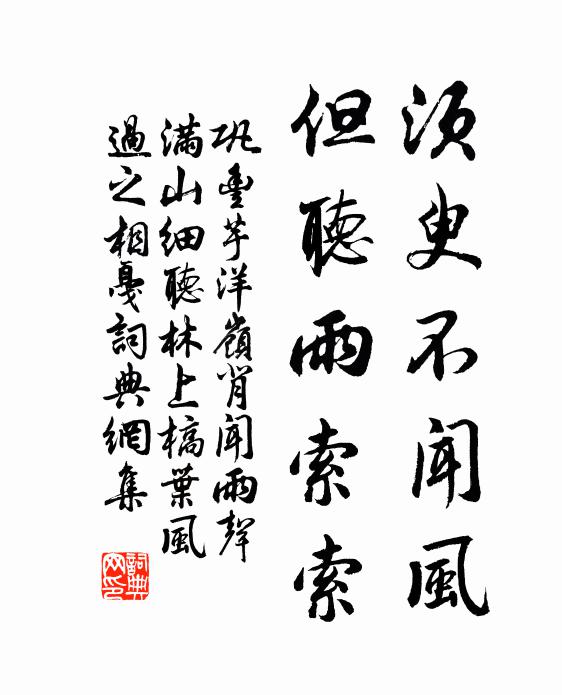 須臾不聞風
但聽雨索索
巩豐芋洋嶺肖聞雨聲
滿山細聽林上槁葉風
過之相戛詞典網集
詞典网印